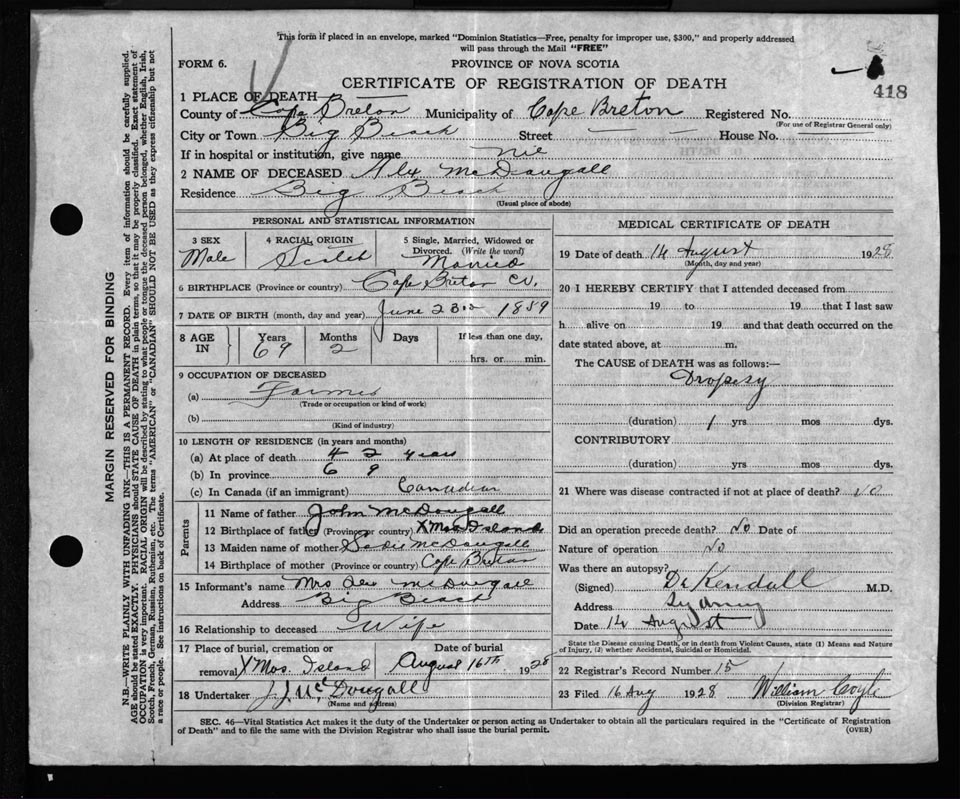 This form if placed in an envelope, marked "Dominion Statistics—Free, penalty for improper use, $300," and properly addressed
will pass through the Mail "FREE"
FORM 6.
PROVINCE OF NOVA SCOTIA
CERTIFICATE OF REGISTRATION OF DEATH
418
1 PLACE OF DEATH
County of Cape Breton Municipality of Cape Breton Registered No.
(For use of Registrar General only)
City or Town Big Beach Street — — — House No.
If in hospital or institution, give name nil
2 NAME OF DECEASED Alex McDougall
Residence Big Beach
(Usual place of abode)
PERSONAL AND STATISTICAL INFORMATION
3 SEX
Male
4 RACIAL ORIGIN
Scotch
5 Single, Married, Widowed or
Divorced. (Write the word)
Married
6 BIRTHPLACE (Province or country) Cape Breton Co.
7 DATE OF BIRTH (month, day and year) June 23rd 1859
8 AGE IN
Years Months Days If less than one day,
69 2 hrs. or min.
9 OCCUPATION OF DECEASED
(a) Farmer
(Trade or occupation or kind of work)
(b)
(Kind of industry)
10 LENGTH OF RESIDENCE (in years and months)
(a) At place of death 42 years
(b) In province 69
(c) In Canada (if an immigrant) Canadian
Parents
11 Name of father John McDougall
12 Birthplace of father (Province or country) Xmas Island
13 Maiden name of mother Sadie McDougall
14 Birthplace of mother (Province or country) Cape Breton
15 Informant's name Mrs Alex McDougall
Address Big Beach
16 Relationship to deceased Wife
17 Place of burial, cremation or
removal X Mas. Island
Date of burial
August 16th 1928
18 Undertaker J. J. McDougall
(Name and address)
MEDICAL CERTIFICATE OF DEATH
19 Date of death 14 August 1928
(Month, day and year)
20 I HEREBY CERTIFY that I attended deceased from
19 to 19 that I last saw
h alive on 19 and that death occurred on the
date stated above, at m.
The CAUSE of DEATH was as follows:—
Dropesy
(duration) 1 yrs mos dys.
CONTRIBUTORY
(duration) yrs mos dys.
21 Where was disease contracted if not at place of death? No
Did an operation precede death? No Date of
Nature of operation No
Was there an autopsy?
(Signed) Dr Kendall M.D.
Address Sydney
Date 14 August
State the Disease causing Death, or in death from Violent Causes, state (1) Means and Nature
of Injury, (2) whether Accidental, Suicidal or Homicidal.
22 Registrar's Record Number 15
23 Filed 16 Aug 1928 William Coyle
(Division Registrar)
SEC. 46—Vital Statistics Act makes it the duty of the Undertaker or person acting as Undertaker to obtain all the particulars required in the "Certificate of Registration
of Death" and to file the same with the Division Registrar who shall issue the burial permit.
(OVER)
MARGIN RESERVED FOR BINDING
N.B.—WRITE PLAINLY WITH UNFADING INK—THIS IS A PERMANENT RECORD. Every item of information should be carefully supplied.
AGE should be stated EXACTLY. PHYSICIANS should STATE CAUSE OF DEATH in plain terms, so that it may be properly classified. Exact statement of
OCCUPATION is very important. RACIAL ORIGIN will be described by stating to what people or tongue the deceased person belonged, whether English, Irish,
Scotch, French, German, Russian, Ruthenian, etc. The terms "AMERICAN" or "CANADIAN" SHOULD NOT BE USED as they express citizenship but not
a race or people. See instructions on back of Certificate.